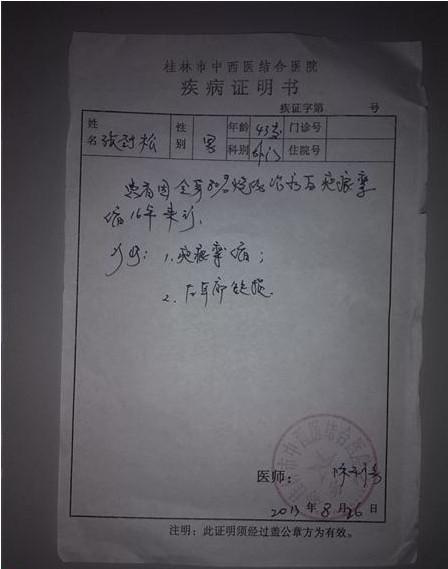 桂林市中西医结合医院
疾病证明书
疾证字第 号
姓名 张 松 性别 男 年龄 43岁 门诊号
科别 外门 住院号
患者因全身80%烧伤治疗后疤痕挛
痛16年来诊。
诊断：1.疤痕挛痛；
2.右耳廓缺损.
医师：
2013年8月26日
注明：此证明须经过盖公章方为有效。
桂林市中西医结合医院